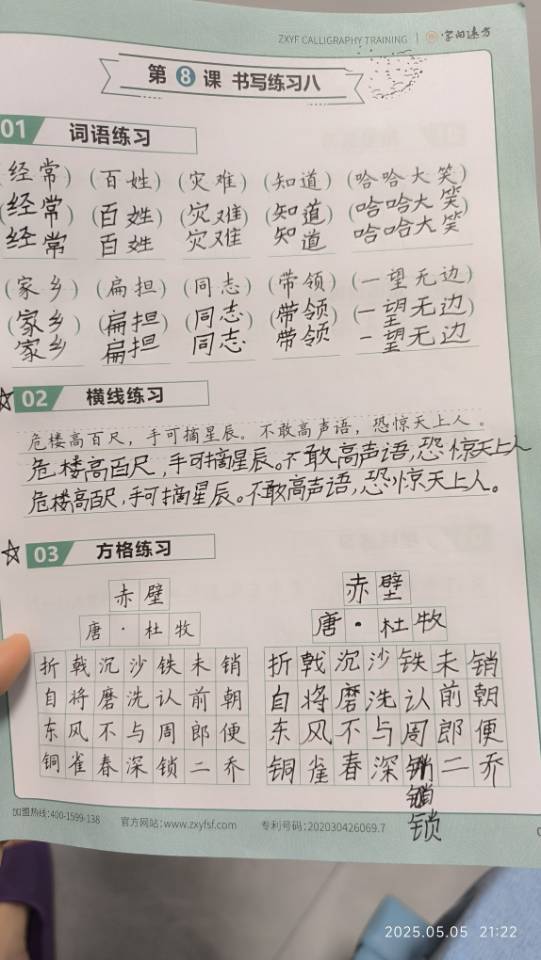 ZXYF CALLIGRAPHY TRAINING | 字的远方
第8课 书写练习八
01 词语练习
(经常) (百姓) (灾难) (知道) (哈哈大笑)
(经常) (百姓) (灾难) (知道) (哈哈大笑)
经常 百姓 灾难 知道 哈哈大笑
(家乡) (扁担) (同志) (带领) (一望无边)
(家乡) (扁担) (同志) (带领) (一望无边)
家乡 扁担 同志 带领 一望无边
02 横线练习
危楼高百尺，手可摘星辰。不敢高声语，恐惊天上人。
危楼高百尺,手可摘星辰。不敢高声语,恐惊天上人
危楼高百尺,手可摘星辰。不敢高声语,恐惊天上人。
03 方格练习
赤壁
唐·杜牧
折戟沉沙铁未销
自将磨洗认前朝
东风不与周郎便
铜雀春深锁二乔
赤壁
唐·杜牧
折戟沉沙铁未销
自将磨洗认前朝
东风不与周郎便
铜雀春深 二乔
锁
加盟热线:400-1599-138 官方网站:www.zxyfsf.com 专利号码:202030426069.7
2025.05.05 21:22